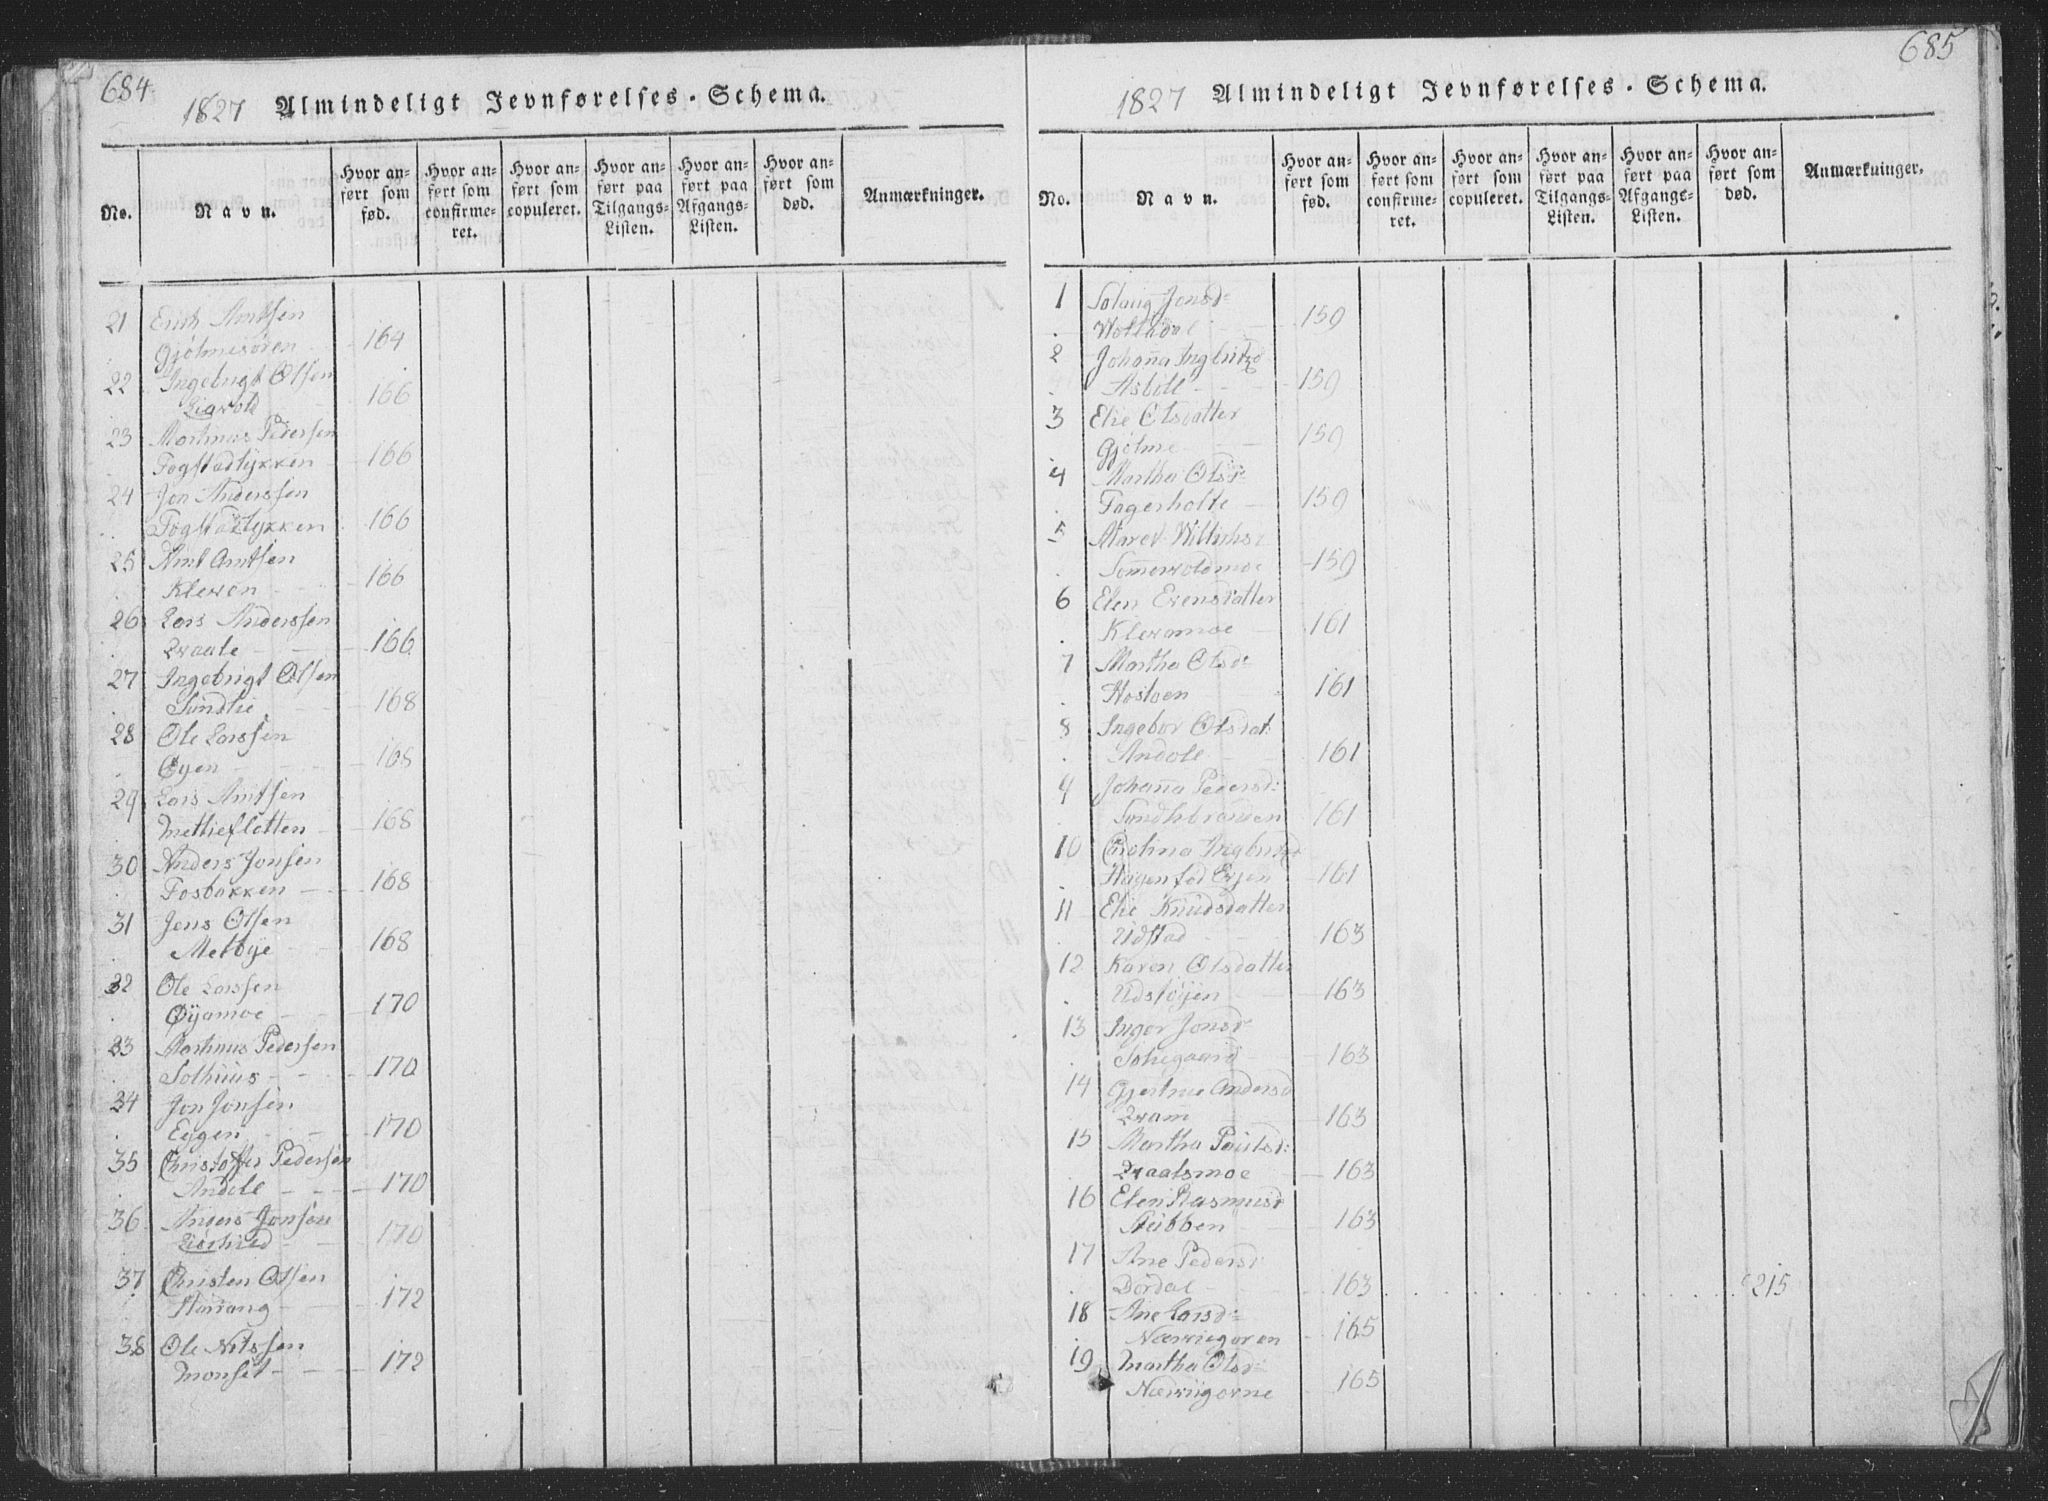 684
1827 Almindeligt Jevnførelses-Schema.
No.
Navn.
Hvor anført som fød.
Hvor anført som confirmeret.
Hvor anført som copuleret.
Hvor anført paa Tilgangs-Listen.
Hvor anført paa Afgangs-Listen.
Hvor anført som død.
Anmærkninger.
21 Erich Arntsen
Gjölmesören 164
22 Ingebrigt Olsen
Ligvold 166
23 Martinus Pedersen
Fogstadlykken 166
24 Jon Anderssen
Fogstadlykken 166
25 Arnt Arntsen
Kleven 166
26 Lars Anderssen
Qvaale 166
27 Ingebrigt Olsen
Sundlie 168
28 Ole Larssen
Øyen 168
29 Lars Arntsen
Metlieflatten 168
30 Anders Jonsen
Fosbakken 168
31 Jens Olsen
Melbye 168
32 Ole Larssen
Öÿamoe 170
33 Martinus Pedersen
Solhuus 170
34 Jon Jonsen
Eggen 170
35 Christoffer Pedersen
Andole 170
36 Anders Jonsen
170
37 Christen Olsen
172
38 Ole Nilssen
Monset 172
685
1827 Almindeligt Jevnførelses-Schema.
No.
Navn.
Hvor anført som fød.
Hvor anført som confirmeret.
Hvor anført som copuleret.
Hvor anført paa Tilgangs-Listen.
Hvor anført paa Afgangs-Listen.
Hvor anført som død.
Anmærkninger.
1 Solaug Jonsd:
159
2 Johanna
Asbøll 159
3 Elie Olsdatter
Gjölme 159
4 Martha Olsd:
Fagerholte 159
5 Maret
159
6 Elen Evensdatter
Klevamoe 161
7 Martha Olsd:
Hostoen 161
8 Ingebor Olsdat:
Andole 161
9 Johanna Pedersd:
161
10
161
11 Elie Knudsdatter
Udstad 163
12 Karen Olsdatter
Udstöÿen 163
13 Inger Jonsd
163
14 Gjertrue Andersd
Qvam 163
15 Martha Paulsd:
Qvaalsmoe 163
16 Elen Rasmusd
Stubben 163
17 Ane Pedersd
Dordal 163 215
18 Ane Larsd:
165
19 Martha Olsd:
165